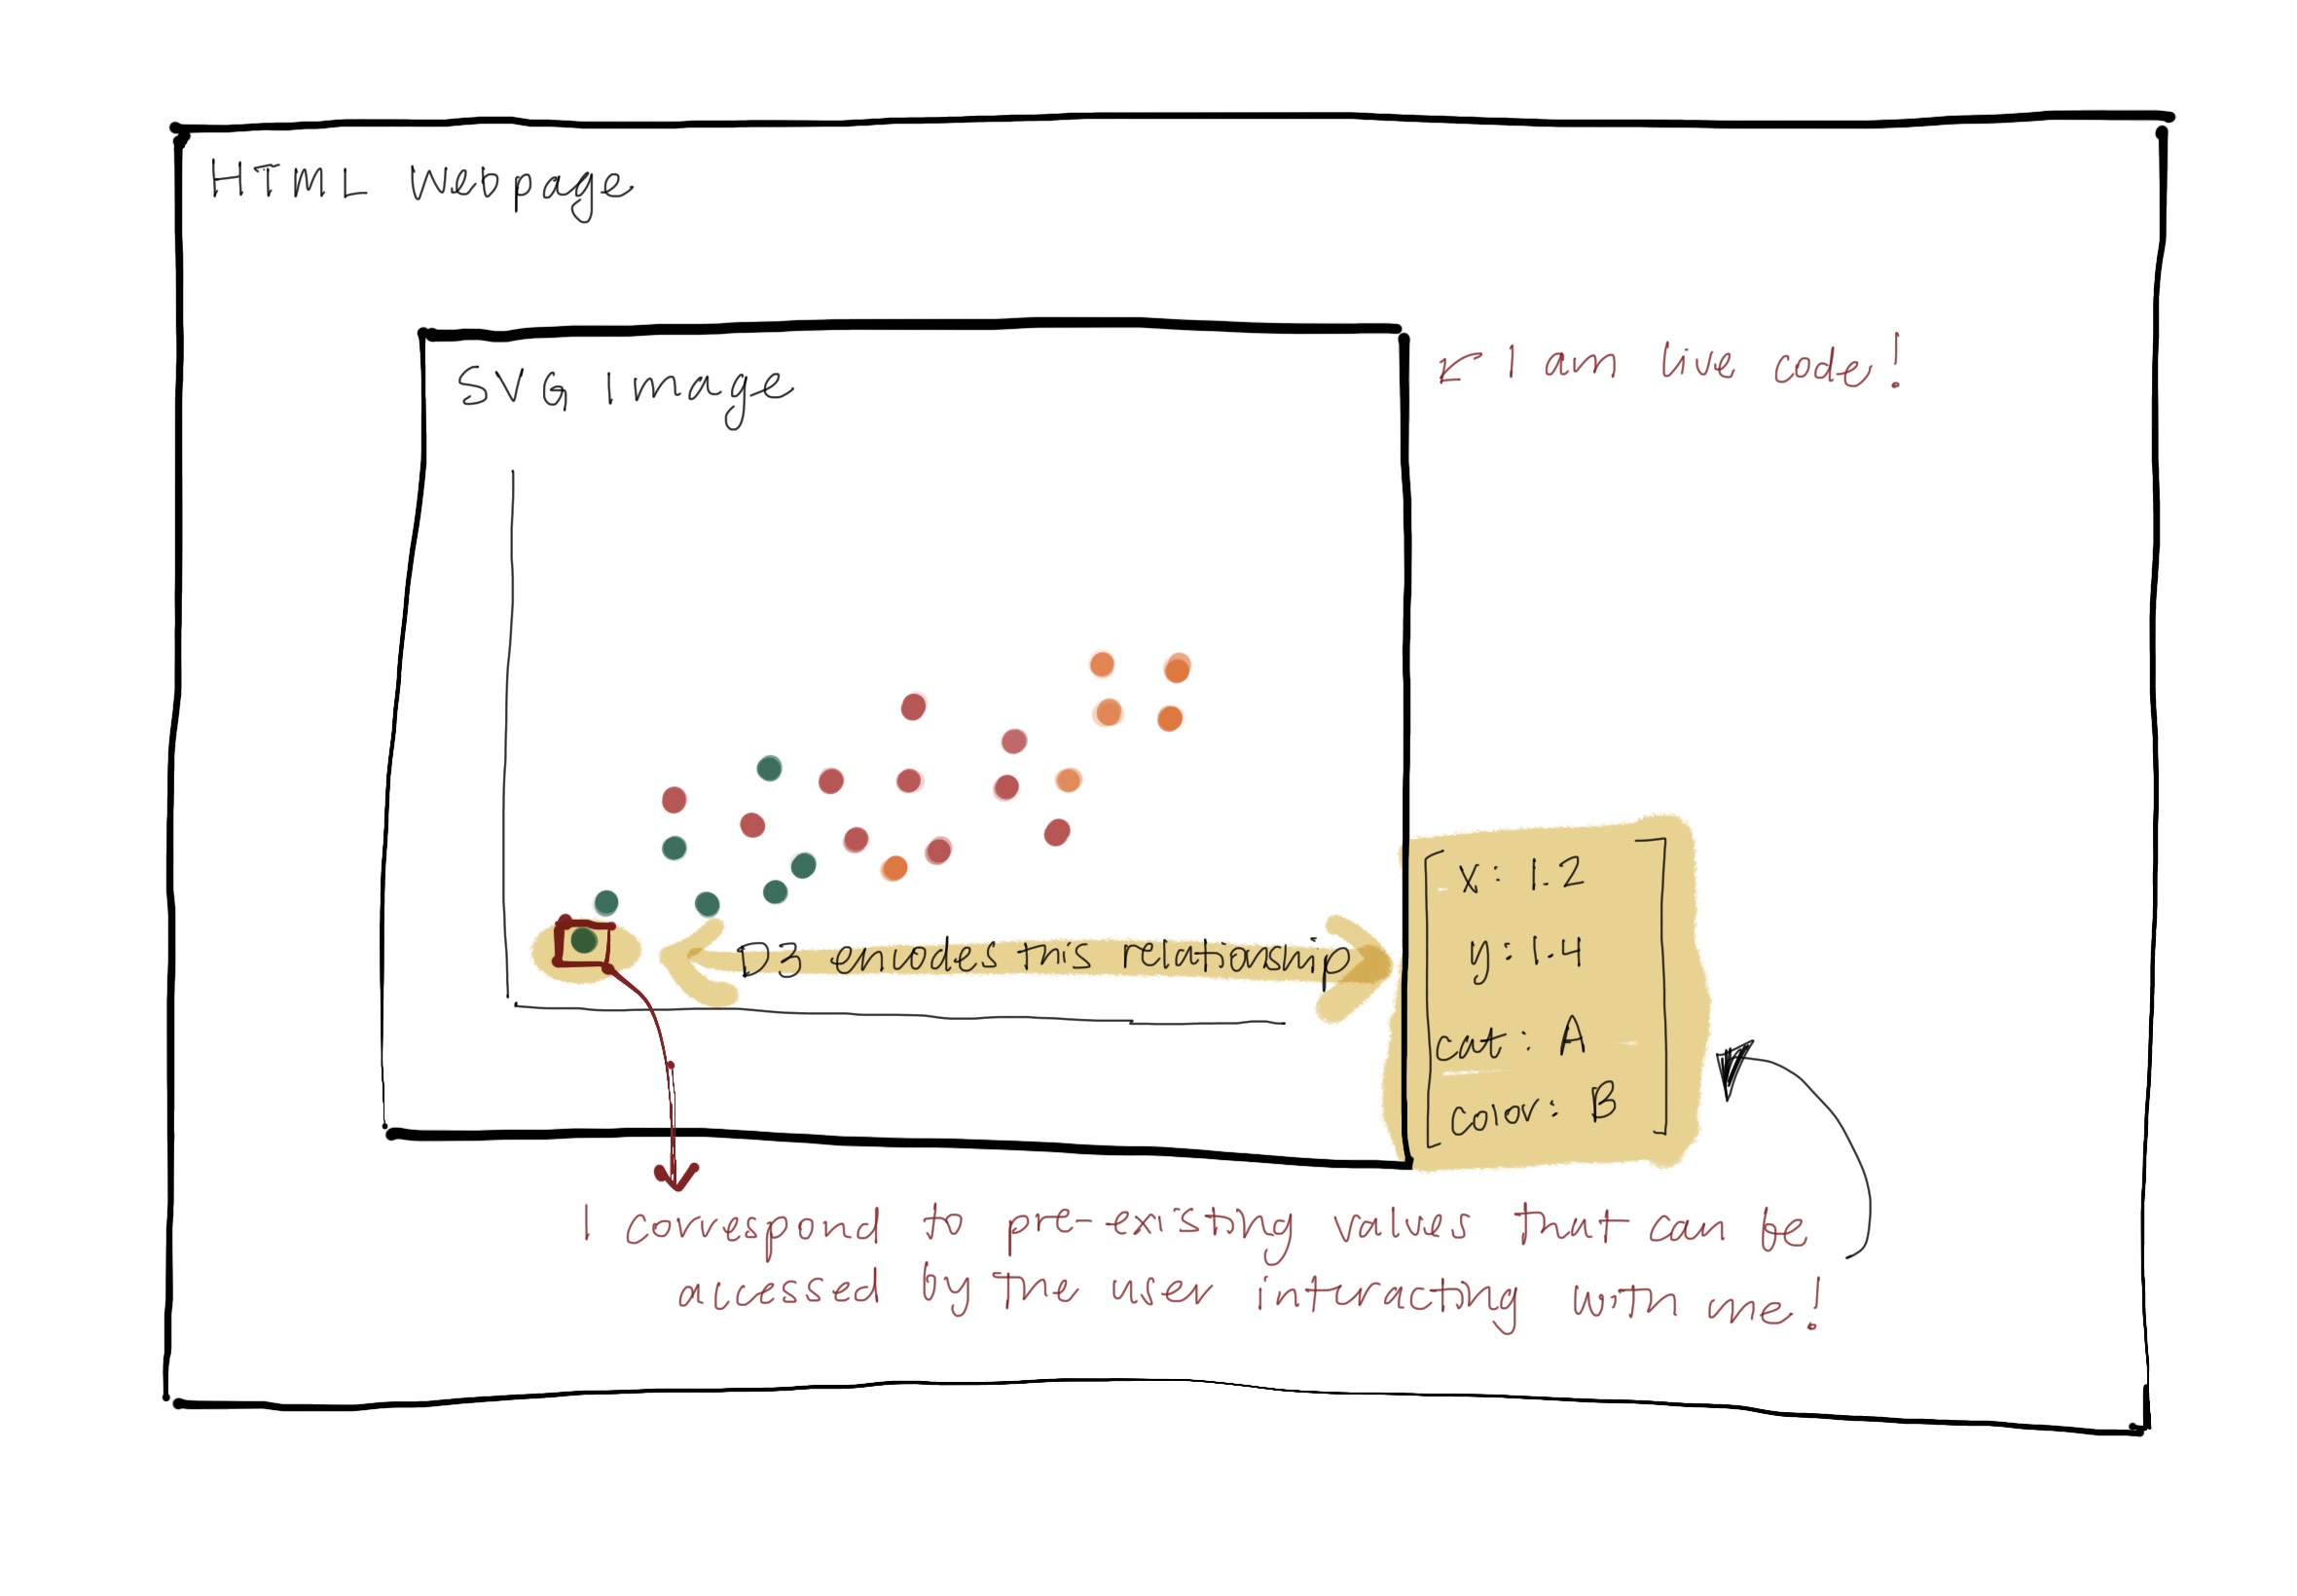 HTML Webpage
SVG Image
I am live code!
D3 encodes this relationship
x: 1.2
y: 1.4
cat: A
color: B
I correspond to pre-existing values that can be
accessed by the user interacting with me!